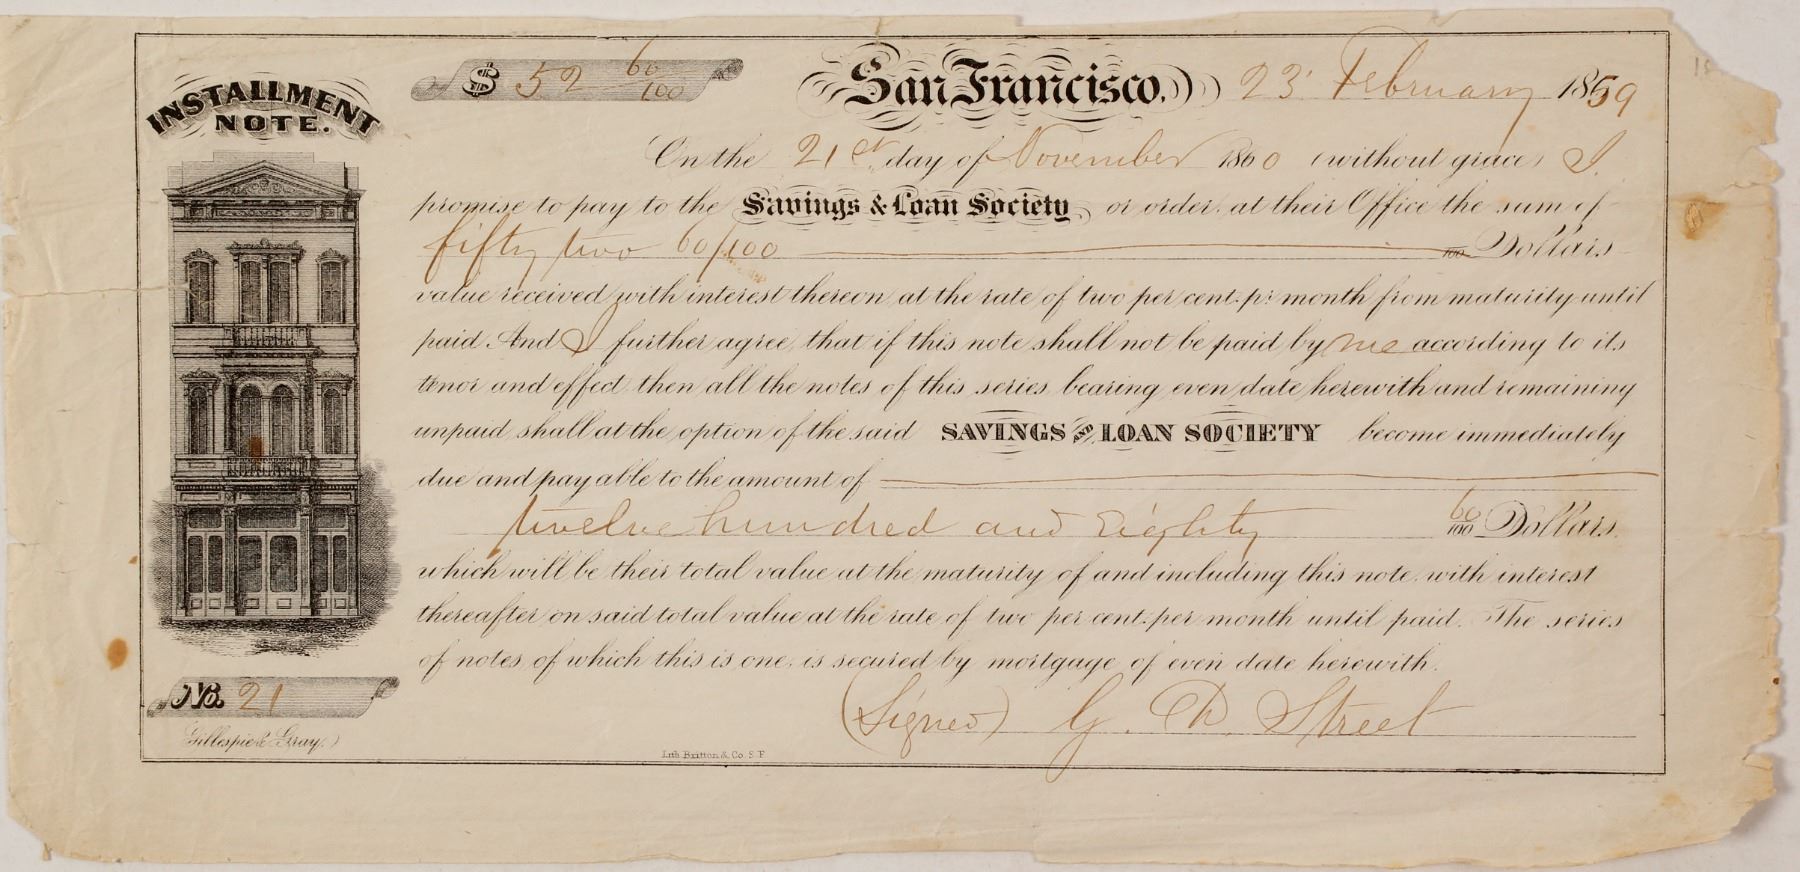 INSTALLMENT
NOTE.
$ 52 60/100
San Francisco, 23 February 1859
On the 21st day of November 1860 (without grace) I
promise to pay to the Savings & Loan Society or order, at their Office the sum of
fifty two 60/100 /100 Dollars
value received with interest thereon at the rate of two per cent. pr. month from maturity until
paid. And I further agree, that if this note shall not be paid by me according to its
tenor and effect then all the notes of this series, bearing even date herewith and remaining
unpaid shall at the option of the said SAVINGS AND LOAN SOCIETY become immediately
due and payable to the amount of
twelve hundred and Eighty 60/100 Dollars.
which will be their total value at the maturity of and including this note, with interest
thereafter on said total value at the rate of two per cent. per month until paid. The series
of notes, of which this is one, is secured by mortgage, of even date herewith.
No. 21
(Signed) G. D. Street
Gillespie & Gray.)
Lith. Britton & Co. S.F.